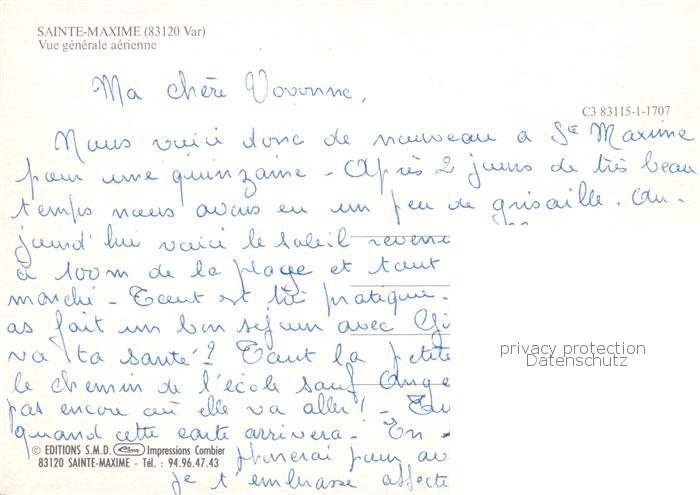 SAINTE-MAXIME (83120 Var)
Vue générale aérienne
Ma chère Vovonne,
C3 83115-1-1707
Nous voici donc de nouveau a Ste Maxime
pour une quinzaine - Après 2 jours de très beau
temps nous avons eu un peu de grisaille. Au-
jourd'hui voici le soleil reven
a 100m de la plage et tout
marché - Tout est pratique.
as fait un bon séjour avec
va ta santé? Tout la petite
le chemin de l'école sauf Ange
pas encore où elle va aller! -
quand cette carte arrivera. En
© EDITIONS S.M.D. Cim Impressions Combier
83120 SAINTE-MAXIME - Tél. : 94.96.47.43
pour
je t'embrasse affecte
privacy protection
Datenschutz